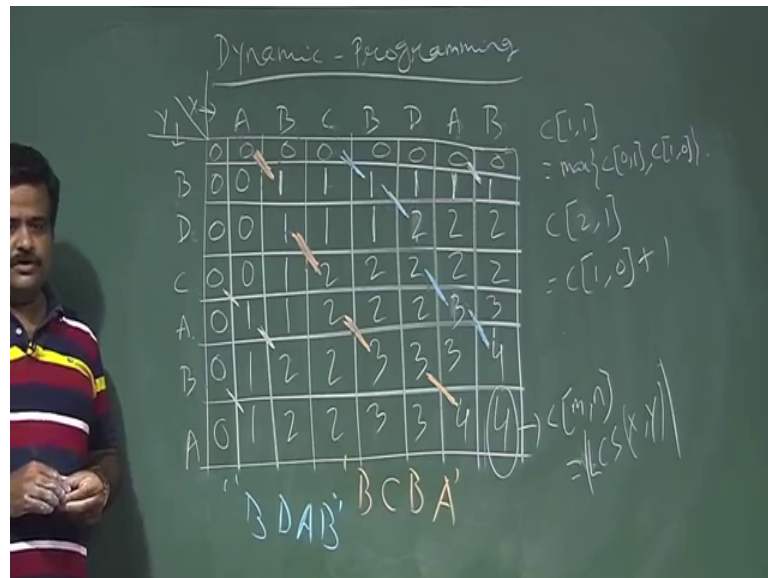 Dynamic - Programming
Y↓ \ X→ A B C B D A B
0 0 0 0 0 0 0 0
B 0 0 1 1 1 1 1 1
D 0 0 1 1 1 2 2 2
C 0 0 1 2 2 2 2 2
A 0 1 1 2 2 2 3 3
B 0 1 2 2 3 3 3 4
A 0 1 2 2 3 3 4 4
C[1,1]
= max{C[0,1], C[1,0]}.
C[2,1]
= C[1,0] + 1
→ C[m,n]
= |LCS(X,Y)|
'BDAB' 'BCBA'